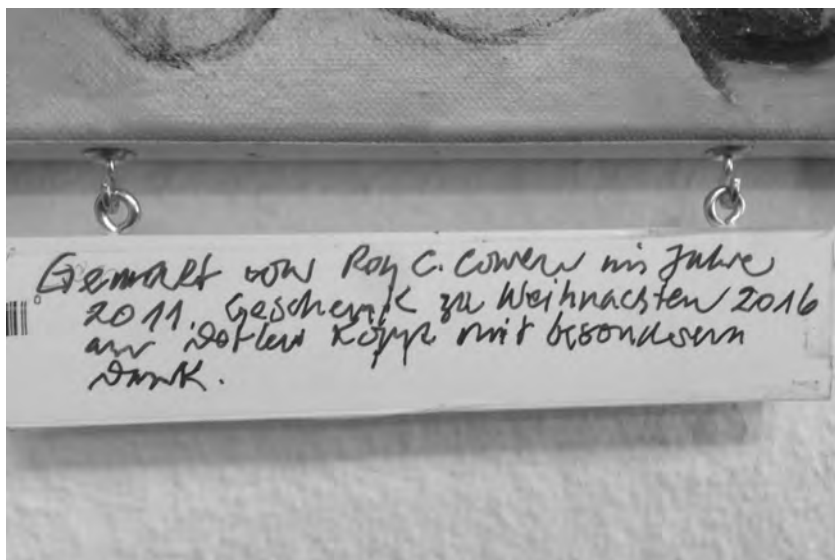 Gemalt von Roy C. Cowen im Jahre
2011. Geschenk zu Weihnachten 2016
an Detlev Kopp mit besonderem
Dank.